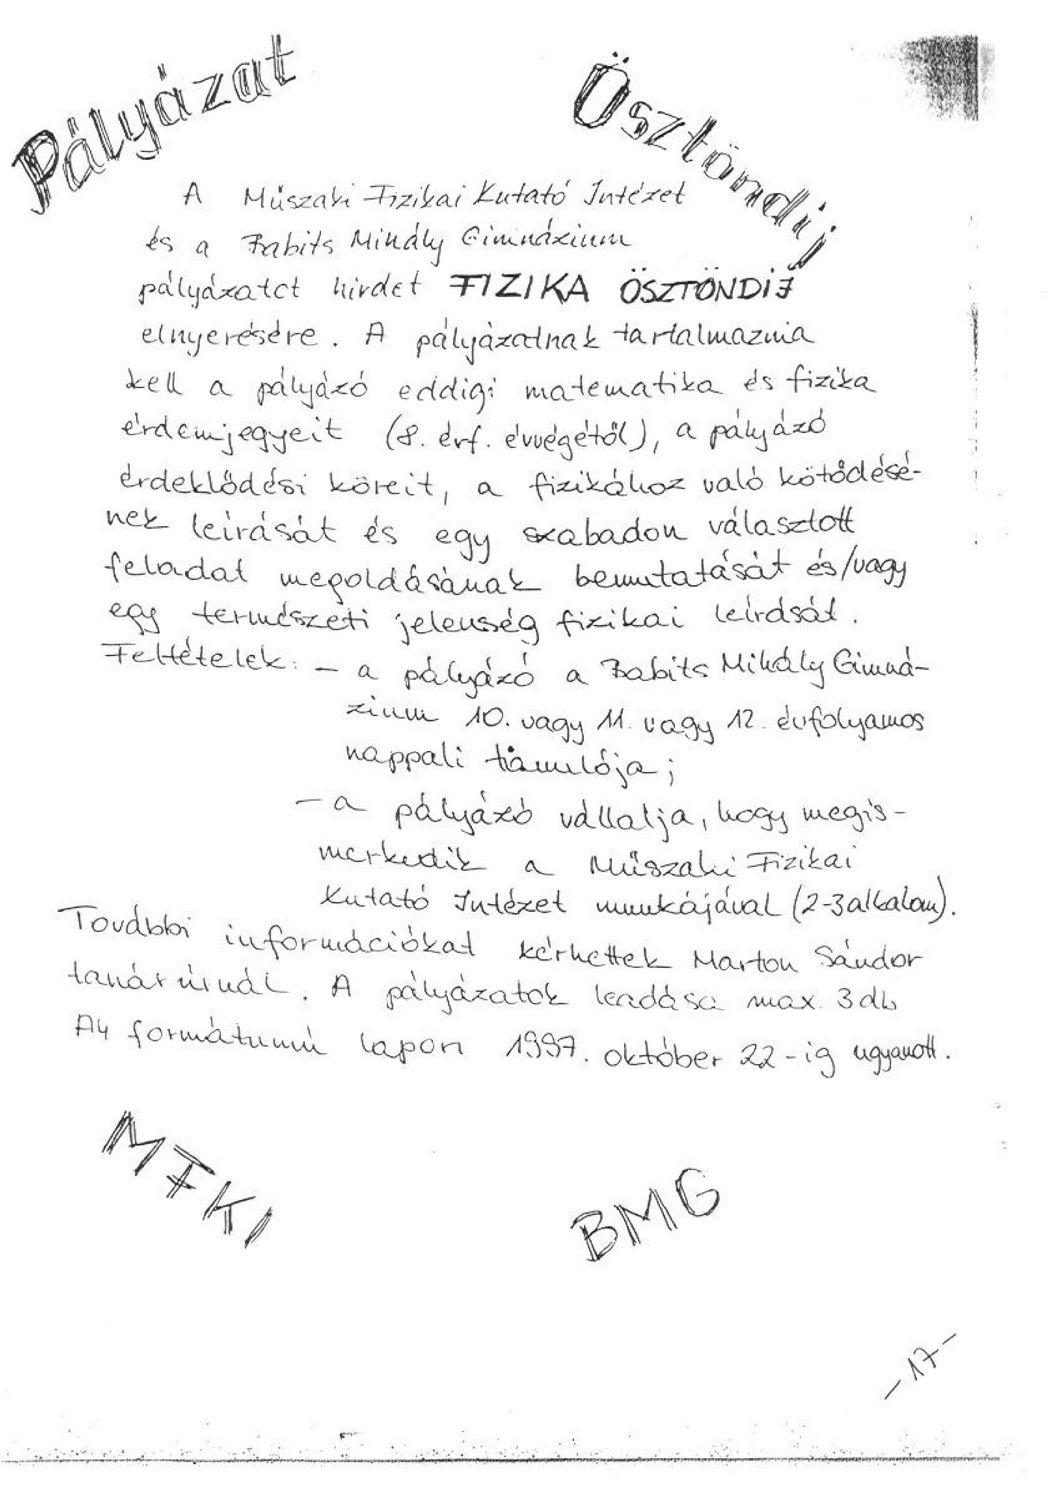 Pályázat
Ösztöndíj
A Műszaki Fizikai Kutató Intézet
és a Babits Mihály Gimnázium
pályázatot hirdet FIZIKA ÖSZTÖNDÍJ
elnyerésére. A pályázatnak tartalmaznia
kell a pályázó eddigi matematika és fizika
érdemjegyeit (8. évf. évvégétől), a pályázó
érdeklődési köreit, a fizikához való kötődésé-
nek leírását és egy szabadon választott
feladat megoldásának bemutatását és/vagy
egy természeti jelenség fizikai leírását.
Feltételek: - a pályázó a Babits Mihály Gimná-
zium 10. vagy 11. vagy 12. évfolyamos
nappali tanulója;
- a pályázó vállalja, hogy megis-
merkedik a Műszaki Fizikai
Kutató Intézet munkájával (2-3 alkalom).
További információkat kérhettek Marton Sándor
tanár úrnál. A pályázatok leadása max. 3 db
A4 formátumú lapon 1997. október 22-ig ugyanott.
MFKI
BMG
-17-